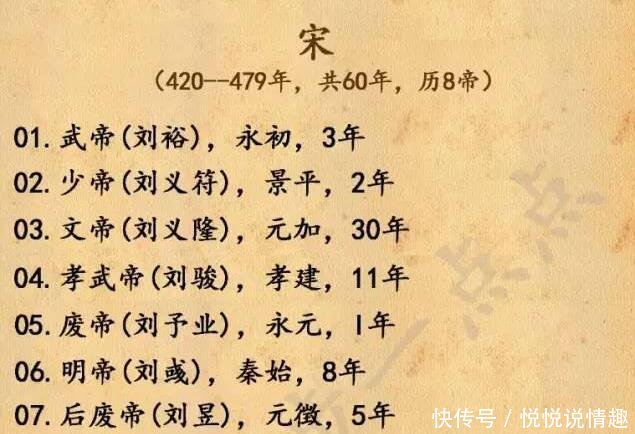 宋
（420--479年，共60年，历8帝）
01.武帝(刘裕)，永初，3年
02.少帝(刘义符)，景平，2年
03.文帝(刘义隆)，元加，30年
04.孝武帝(刘骏)，孝建，11年
05.废帝(刘予业)，永元，1年
06.明帝(刘彧)，秦始，8年
07.后废帝(刘昱)，元徵，5年
一点点
快传号／悦悦说情趣